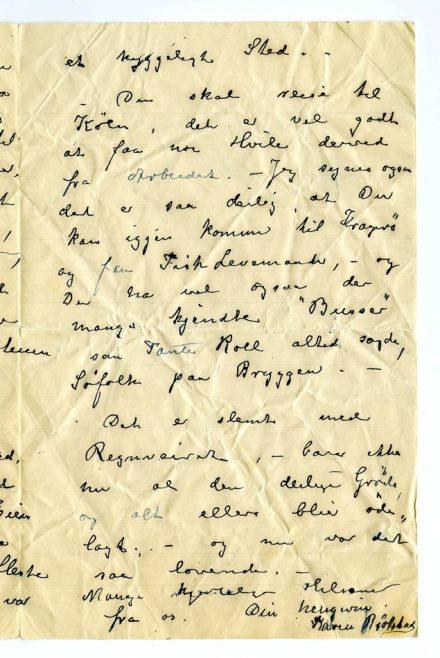 et hyggeligt Sted. -
- Du skal reise til
Köln, det er vel godt
at faa noe Hvile derved
fra Arbeidet. - Jeg synes ogsaa
det er saa deilig, at Du
kan iggjen komme til Kragerö
og faa Fisk Levernde, - og
Du ha vel ogsaa der
mange kjendte "Busser"
som Tante Roll altid sagde,
Söfolk paa Bryggen. -
Det er slemt med
Regnveiret, - bare ikke
nu al den deilige Gröde,
og alt ellers blir öde„
lagt. - og nu var det
saa lovende. -
Mange hjertelige Hilsener
fra os. Din hengivne
Karen